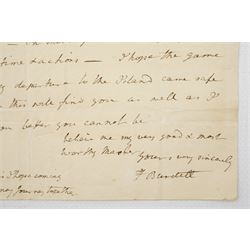 time & actions — I hope the game
departure to the Island came safe
this note find you as well as I
better you cannot be
believe me my very good & most
worthy
yours very sincerely
F Burdett
I hope coming
Journey together